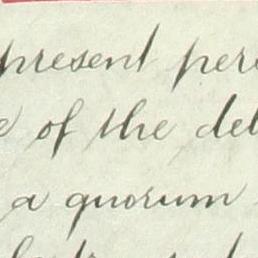 present per
e of the del
a quorum